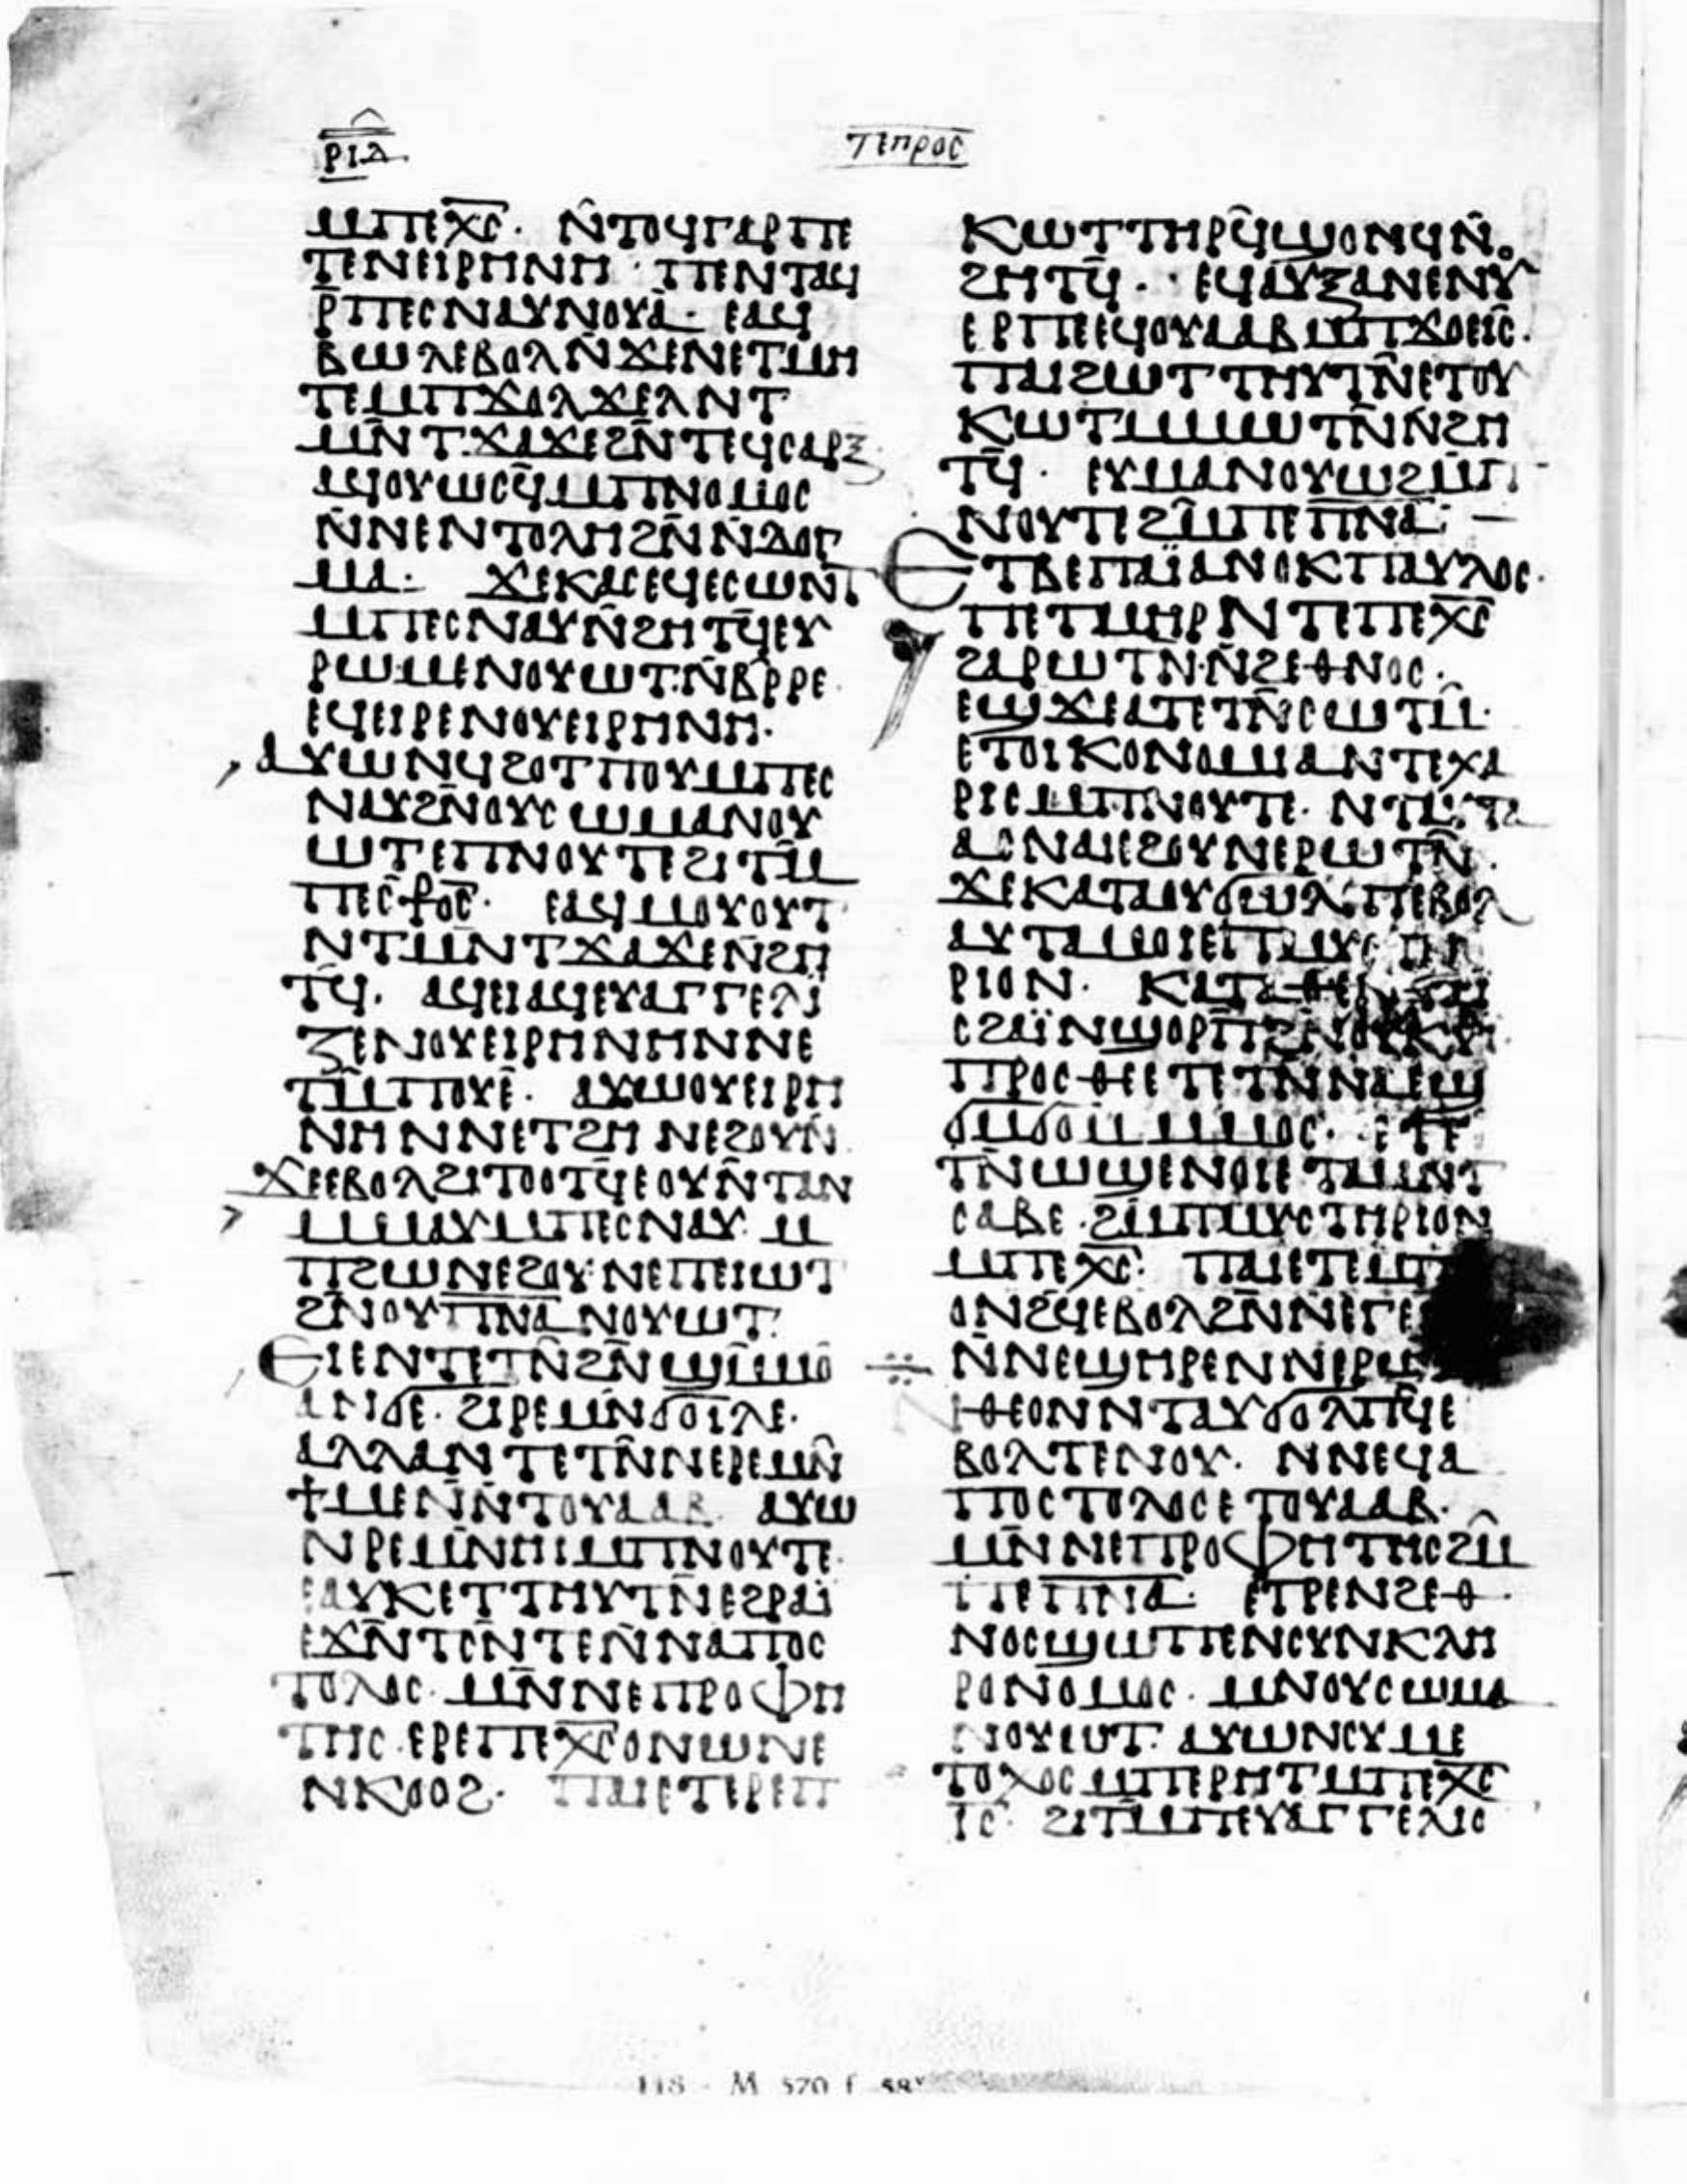 ⲣⲓⲇ
ⲧⲉⲡⲣⲟⲥ
ⲙⲡⲉⲭ̅ⲥ̅· ⲛ̄ⲧⲟϥⲅⲁⲣⲡⲉ
ⲧⲉⲛⲉⲓⲣⲏⲛⲏ· ⲡⲉⲛⲧⲁϥ
ⲣ̄ⲡⲉⲥⲛⲁⲩⲛⲟⲩⲁ̄· ⲉⲁϥ
ⲃⲱⲗⲉⲃⲟⲗⲛ̄ϫⲉⲛⲉⲧⲙⲏ
ⲧⲉⲙⲡϫⲟⲗϫⲉⲗⲛⲧ
ⲙⲛ̄ⲧϫⲁϫⲉϩⲛ̄ⲧⲉϥⲥⲁⲣⲝ
ⲁϥⲟⲩⲱⲥϥ̄ⲙⲡⲛⲟⲙⲟⲥ
ⲛ̄ⲛⲉⲛⲧⲟⲗⲏϩⲛ̄ⲛ̄ⲇⲟⲅ
ⲙⲁ· ϫⲉⲕⲁⲥⲉϥⲉⲥⲱⲛⲧ
ⲙⲡⲉⲥⲛⲁⲩⲛ̄ϩⲏⲧϥ̄ⲉⲩ
ⲣⲱⲙⲉⲛⲟⲩⲱⲧ·ⲛ̄ⲃⲣ̄ⲣⲉ·
ⲉϥⲉⲓⲣⲉⲛⲟⲩⲉⲓⲣⲏⲛⲏ·
ⲁⲩⲱⲛϥϩⲟⲧⲡⲟⲩⲙⲡⲉⲥ
ⲛⲁⲩϩⲛ̄ⲟⲩⲥⲱⲙⲁⲛⲟⲩ
ⲱⲧⲉⲡⲛⲟⲩⲧⲉϩⲓⲧⲙ̄
ⲡⲉⲥ̅ⲣⲟⲥ̅· ⲉⲁϥⲙⲟⲩⲟⲩⲧ
ⲛⲧⲙⲛ̄ⲧϫⲁϫⲉⲛ̄ϩⲏ
ⲧϥ̄· ⲁϥⲉⲓⲁϥⲉⲩⲁⲅⲅⲉⲗⲓ
ⲍⲉⲛⲟⲩⲉⲓⲣⲏⲛⲏⲛⲛⲉ
ⲧⲙ̄ⲡⲟⲩⲉ̄· ⲁⲩⲱⲟⲩⲉⲓⲣⲏ
ⲛⲏⲛⲛⲉⲧϩⲏⲛⲉϩⲟⲩⲛ̄
ϫⲉⲉⲃⲟⲗϩⲓⲧⲟⲟⲧϥ̄ⲉⲟⲩⲛ̄ⲧⲁⲛ
ⲙⲙⲁⲩⲙⲡⲉⲥⲛⲁⲩ·ⲙ
ⲡϩⲱⲛⲉϩⲟⲩⲛⲉⲡⲉⲓⲱⲧ
ϩⲛ̄ⲟⲩⲡ̅ⲛ̅ⲁ̅ⲛⲟⲩⲱⲧ·
ⲉⲓⲉⲛⲧⲉⲧⲛ̄ϩⲛ̄ϣⲙ̄ⲙⲟ
ⲁⲛϭⲉ·ϩⲓⲣⲉⲙⲛ̄ϭⲟⲓⲗⲉ·
ⲁⲗⲗⲁⲛⲧⲉⲧⲛ̄ⲛⲉⲣⲉⲙⲛ̄
ϯⲙⲉⲛ̄ⲛⲧⲟⲩⲁⲁⲃ· ⲁⲩⲱ
ⲛⲣⲉⲙⲛ̄ⲏⲓⲙⲡⲛⲟⲩⲧⲉ·
ⲉⲁⲩⲕⲉⲧⲧⲏⲩⲧⲛ̄ⲉϩⲣⲁⲓ̈
ⲉϫⲛ̄ⲧⲥⲛ̄ⲧⲉⲛ̄ⲛⲁⲡⲟⲥ
ⲧⲟⲗⲟⲥ·ⲙⲛ̄ⲛⲉⲡⲣⲟⲫⲏ
ⲧⲏⲥ·ⲉⲣⲉⲡⲉⲭ̅ⲥ̅ⲟⲛⲱⲛⲉ
ⲛⲕⲟⲟϩ· ⲡⲁⲓⲉⲧⲉⲣⲉⲡ
ⲕⲱⲧⲧⲏⲣϥ̄ϣⲟⲛϥⲛ̄
ϩⲏⲧϥ̄· ⲉϥⲁⲩⲝⲁⲛⲉⲛⲩ
ⲉⲣⲡⲉⲉϥⲟⲩⲁⲁⲃⲙⲡϫⲟⲉⲓⲥ·
ⲡⲁⲓϩⲱⲧⲧⲏⲩⲧⲛ̄ⲉⲧⲟⲩ
ⲕⲱⲧⲙⲙⲱⲧⲛ̄ⲛ̄ϩⲏ
ⲧϥ̄· ⲉⲩⲙⲁⲛⲟⲩⲱϩⲙⲡ
ⲛⲟⲩⲧⲉϩⲙ̄ⲡⲉⲡ̅ⲛ̅ⲁ̅
ⲉⲧⲃⲉⲡⲁⲓ̈ⲁⲛⲟⲕⲡⲁⲩⲗⲟⲥ·
ⲡⲉⲧⲙⲏⲣⲛⲧⲉⲡⲉⲭ̅ⲥ̅
ϩⲁⲣⲱⲧⲛ·ⲛ̄ϩⲉⲑⲛⲟⲥ·
ⲉϣϫⲉⲁⲧⲉⲧⲛ̄ⲥⲱⲧⲙ̄·
ⲉⲧⲟⲓⲕⲟⲛⲟⲙⲓⲁⲛⲧⲉⲭⲁ
ⲣⲓⲥⲙⲡⲛⲟⲩⲧⲉ·ⲛⲧⲁⲩⲧⲁ
ⲁⲥⲛⲁⲓⲉϩⲟⲩⲛⲉⲣⲱⲧⲛ̄·
ϫⲉⲕⲁⲧⲁⲟⲩϭⲱⲗⲡⲉⲃⲟⲗ
ⲁⲩⲧⲁⲙⲟⲓⲉⲡⲙⲩⲥⲧⲏ
ⲣⲓⲟⲛ· ⲕⲁⲧⲁⲑⲉ
ⲥϩⲁⲓ̈ⲛϣⲟⲣⲡ̄ϩⲛⲟⲩⲕⲟⲩⲓ·
ⲡⲣⲟⲥⲑⲉⲉⲧⲉⲧⲛⲛⲁⲉϣ
ϭⲙϭⲟⲙⲙⲙⲟⲥ· ⲉⲧⲉ
ⲧⲛ̄ⲱϣⲉⲛⲟⲓⲉⲧⲁⲙⲛⲧ
ⲥⲁⲃⲉ·ϩⲙ̄ⲡⲙⲩⲥⲧⲏⲣⲓⲟⲛ
ⲙⲡⲉⲭ̅ⲥ̅· ⲡⲁⲓⲉⲧⲉⲙⲡ
ⲟⲛϩϥⲉⲃⲟⲗϩⲛ̄ⲛⲉⲅⲉ
ⲛ̄ⲛⲉϣⲏⲣⲉⲛⲛⲉⲣⲱ
ⲑⲉⲟⲛⲛⲧⲁⲩϭⲟⲗⲡϥ̄ⲉ
ⲃⲟⲗⲧⲉⲛⲟⲩ· ⲛⲛⲉϥⲁ
ⲡⲟⲥⲧⲟⲗⲟⲥⲉⲧⲟⲩⲁⲁⲃ·
ⲙⲛ̄ⲛⲉⲡⲣⲟⲫⲏⲧⲏⲥϩⲙ̄
ⲡⲉⲡ̅ⲛ̅ⲁ̅· ⲉⲧⲣⲉⲛϩⲉⲑ
ⲛⲟⲥϣⲱⲡⲉⲛⲥⲩⲛⲕⲗⲏ
ⲣⲟⲛⲟⲙⲟⲥ·ⲙⲛⲟⲩⲥⲱⲙⲁ
ⲛⲟⲩⲱⲧ·ⲁⲩⲱⲛⲥⲩⲙⲉ
ⲧⲟⲭⲟⲥⲙⲡⲉⲣⲏⲧⲙⲡⲉⲭ̅ⲥ̅
ⲓⲥ· ϩⲓⲧⲙ̄ⲡⲉⲩⲁⲅⲅⲉⲗⲓⲟ
118 - M 570 f 58ᵛ